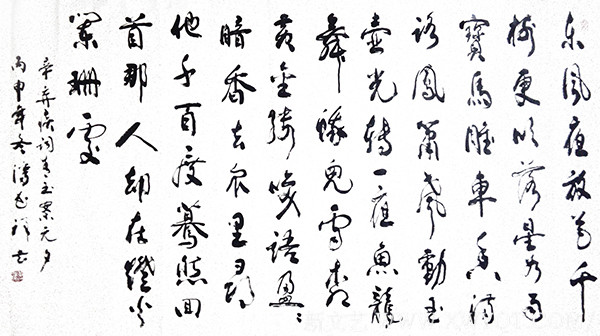 東風夜放花千
樹更吹落星如雨
寶馬雕車香滿
路鳳簫聲動玉
壺光轉一夜魚龍
舞蛾兒雪柳
黃金縷笑語盈〻
暗香去衆里尋
他千百度驀然回
首那人却在燈火
闌珊處
辛弃疾詞青玉案元夕
丙申年冬